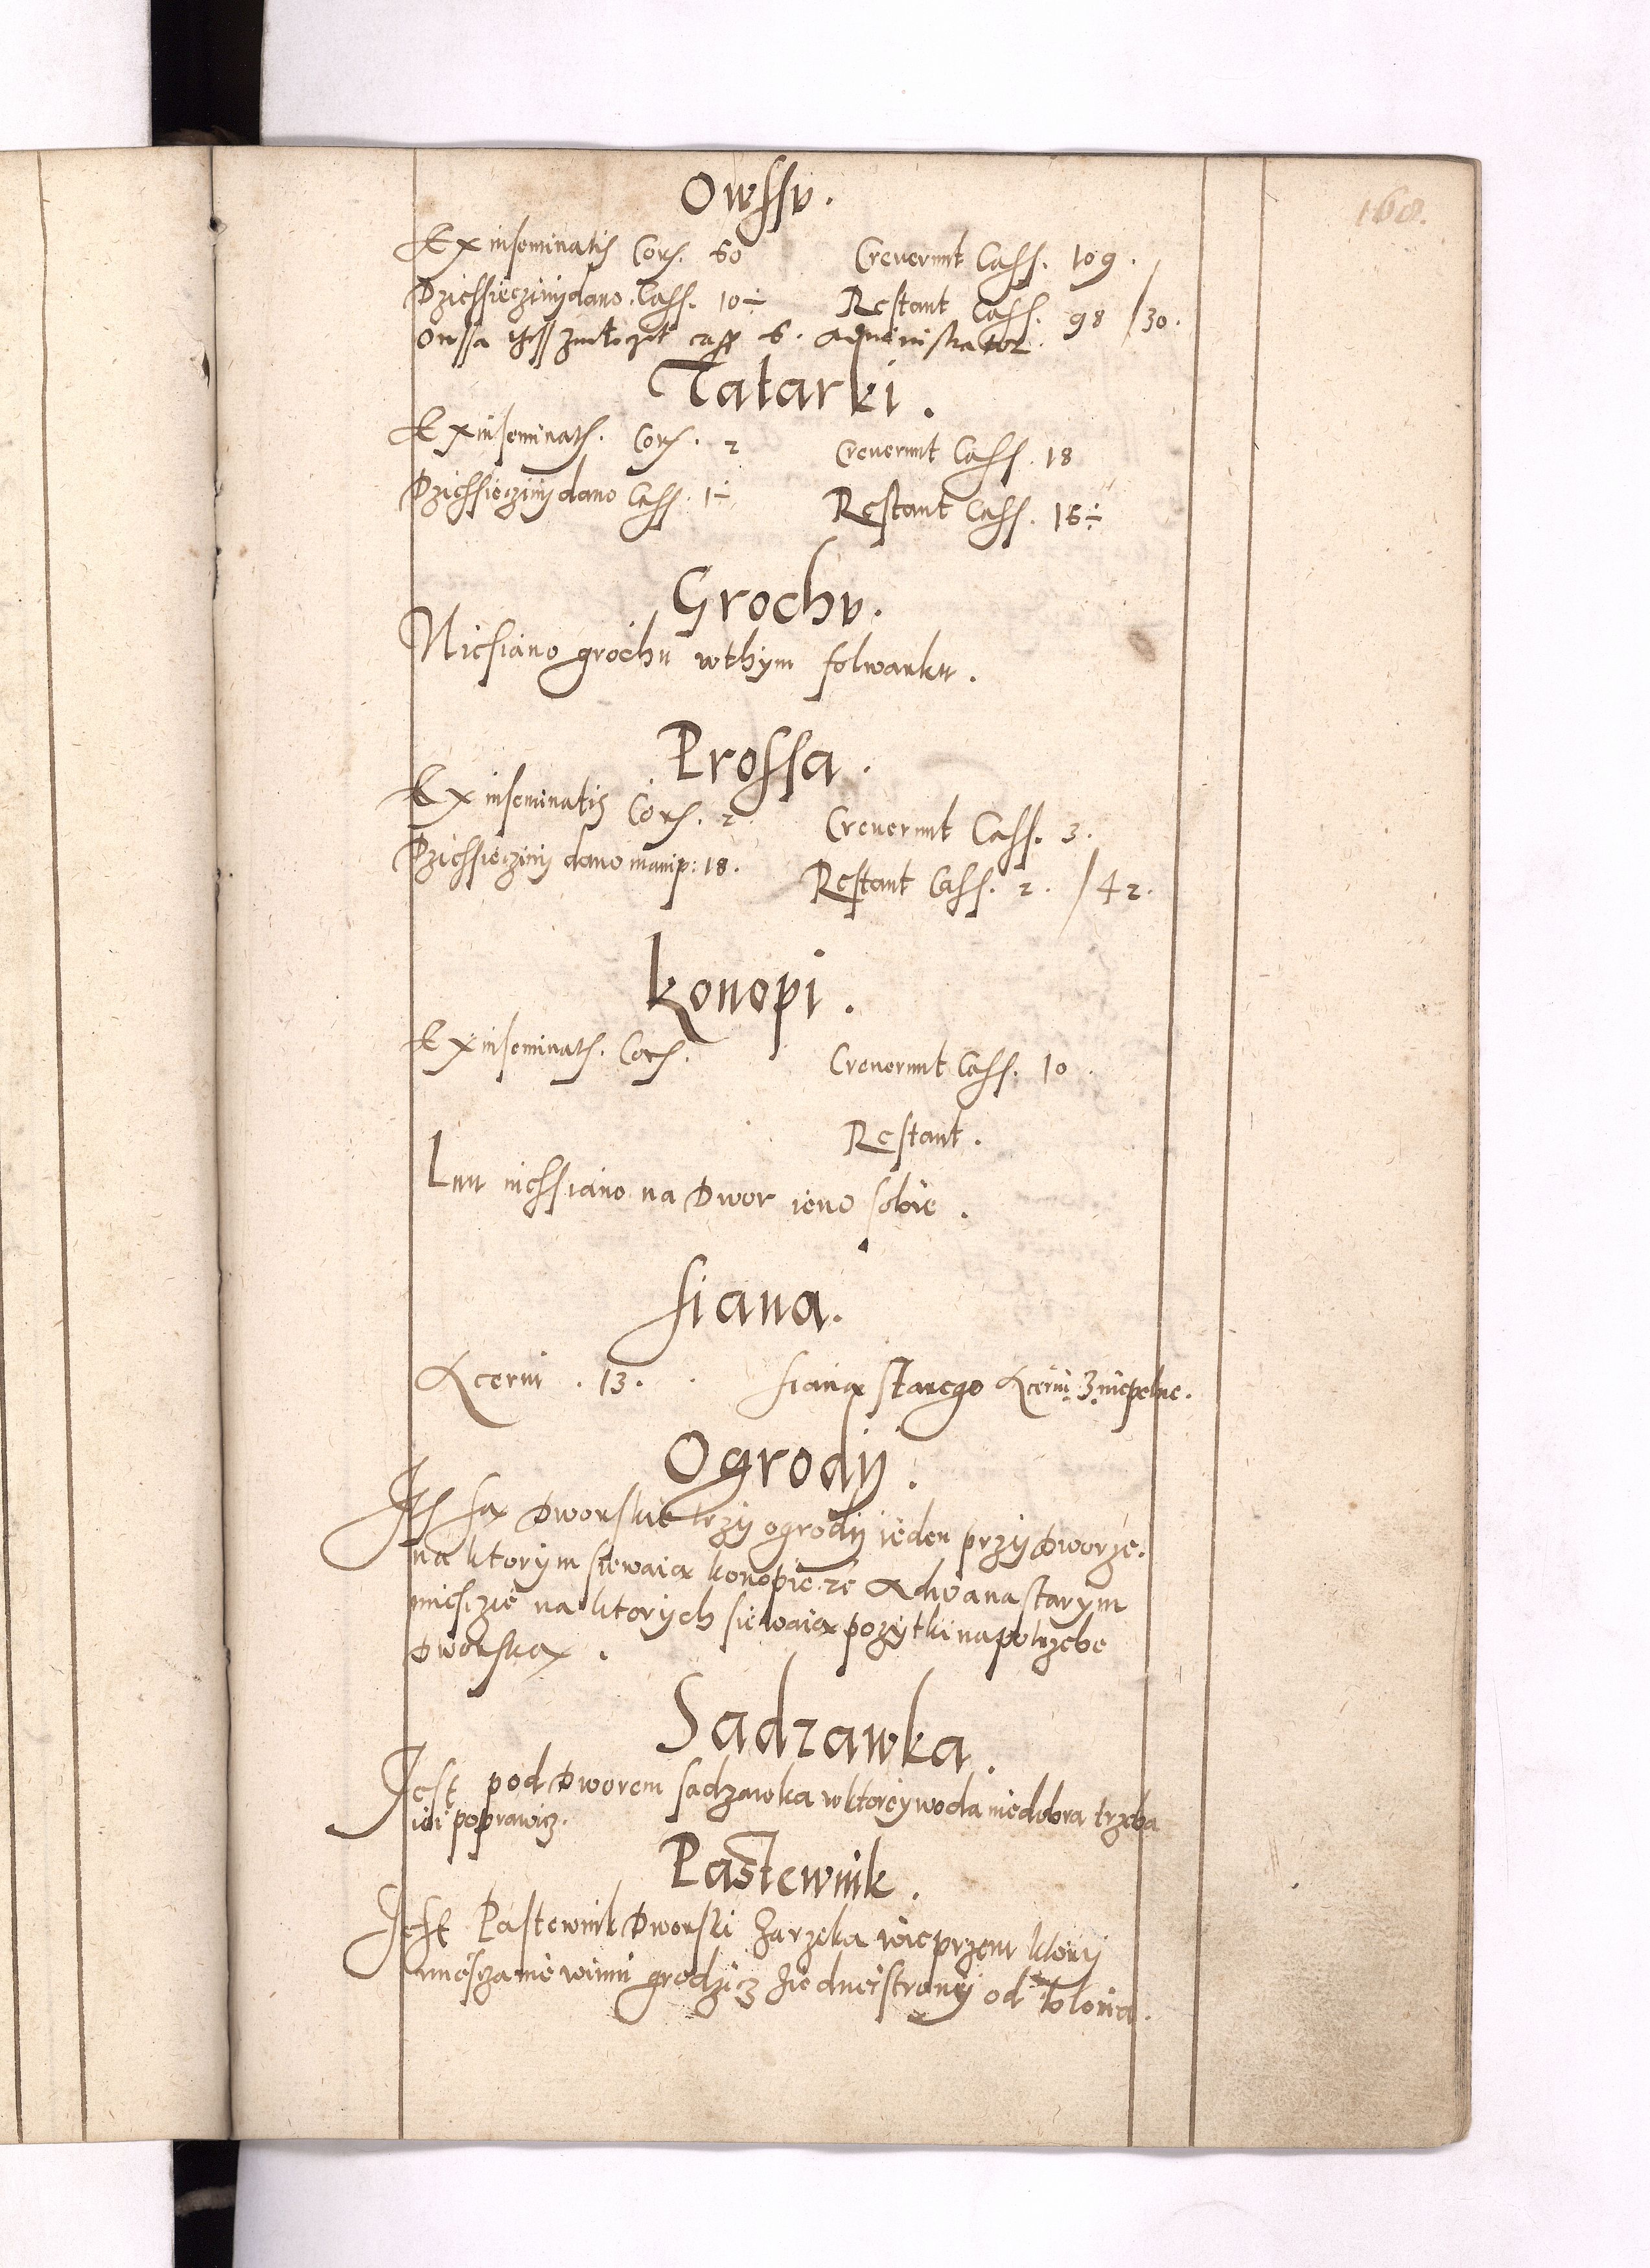 168.
Owssv.
Ex inseminatis Cors. 60 Creuerunt Cass. 109.
Dzichsięcziny dano. Cass. 10÷ Restant Cass. 98 / 30.
Owssa thess zmłoczil cass 6. administrator.
Tatarki.
Ex inseminatis. Cors. 2 Creuerunt Cass. 18
Dzichsięcziny dano Cass. 1÷ Restant Cass. 16÷
Grochv.
Niesiano grochu wthym folwarku.
Prossa.
Ex inseminatis Cors. 2. Creuerunt Cass. 3.
Dzichsięcziny dano manip: 18. Restant Cass. 2. / 42.
Konopi.
Ex inseminatis. Cors. Creuerunt Cass. 10.
Restant.
Lnu niessiano na Dwor ieno sobie.
Siana.
Acerui. 13. Siana starego Acerui. 3. niepełne.
Ogrody.
Js są Dworskie trzy ogrody ieden przy Dworze.
na ktorym siewaią konopie. ze A dwa na starym
miesczie na ktorych siewaią pozytki na potrzebe
Dworską.
Sadzawka.
Jest pod Dworem sadzawka wktorey woda niedobra trzeba
iei poprawicz.
Pastewnik.
Jest Pastewnik Dworski Za rzeka wieprzem ktory
miesczanie winni grodzicz Ziednei strony od